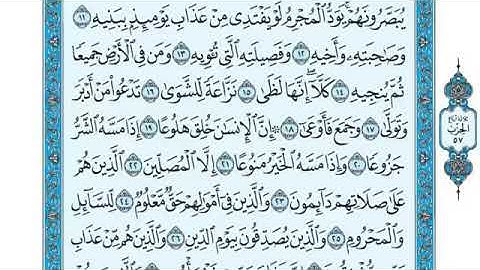 يُبَصَّرُونَهُمْ يَوَدُّ ٱلْمُجْرِمُ لَوْ يَفْتَدِى مِنْ عَذَابِ يَوْمِئِذٍ بِبَنِيهِ ١١
وَصَٰحِبَتِهِۦ وَأَخِيهِ ١٢ وَفَصِيلَتِهِ ٱلَّتِى تُـْٔوِيهِ ١٣ وَمَن فِى ٱلْأَرْضِ جَمِيعًا
ثُمَّ يُنجِيهِ ١٤ كَلَّآ إِنَّهَا لَظَىٰ ١٥ نَزَّاعَةً لِّلشَّوَىٰ ١٦ تَدْعُوا۟ مَنْ أَدْبَرَ
وَتَوَلَّىٰ ١٧ وَجَمَعَ فَأَوْعَىٰٓ ١٨ ۞ إِنَّ ٱلْإِنسَٰنَ خُلِقَ هَلُوعًا ١٩ إِذَا مَسَّهُ ٱلشَّرُّ
جَزُوعًا ٢٠ وَإِذَا مَسَّهُ ٱلْخَيْرُ مَنُوعًا ٢١ إِلَّا ٱلْمُصَلِّينَ ٢٢ ٱلَّذِينَ هُمْ
عَلَىٰ صَلَاتِهِمْ دَآئِمُونَ ٢٣ وَٱلَّذِينَ فِىٓ أَمْوَٰلِهِمْ حَقٌّ مَّعْلُومٌ ٢٤ لِّلسَّآئِلِ
وَٱلْمَحْرُومِ ٢٥ وَٱلَّذِينَ يُصَدِّقُونَ بِيَوْمِ ٱلدِّينِ ٢٦ وَٱلَّذِينَ هُم مِّنْ عَذَابِ
الحزب
٥٧